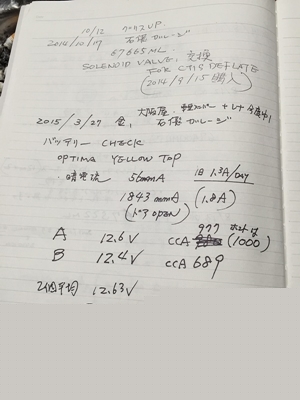 10/12 ワックスUP.
2014/10/19 石原ガレージ
E7665NL
SOLENOID VALVE, 交換
FOR CTIS DEFLATE
(2014/9/15 購入)
2015/3/27 金,
石原ガレージ
バッテリー CHECK
OPTIMA YELLOW TOP
暗電流 51mmA 1日 1.3A/DAY
1843 mmA (1.8A)
(ドア OPEN)
977
A 12.6V CCA (1000)
B 12.4V CCA 689
2個平均 12.63V